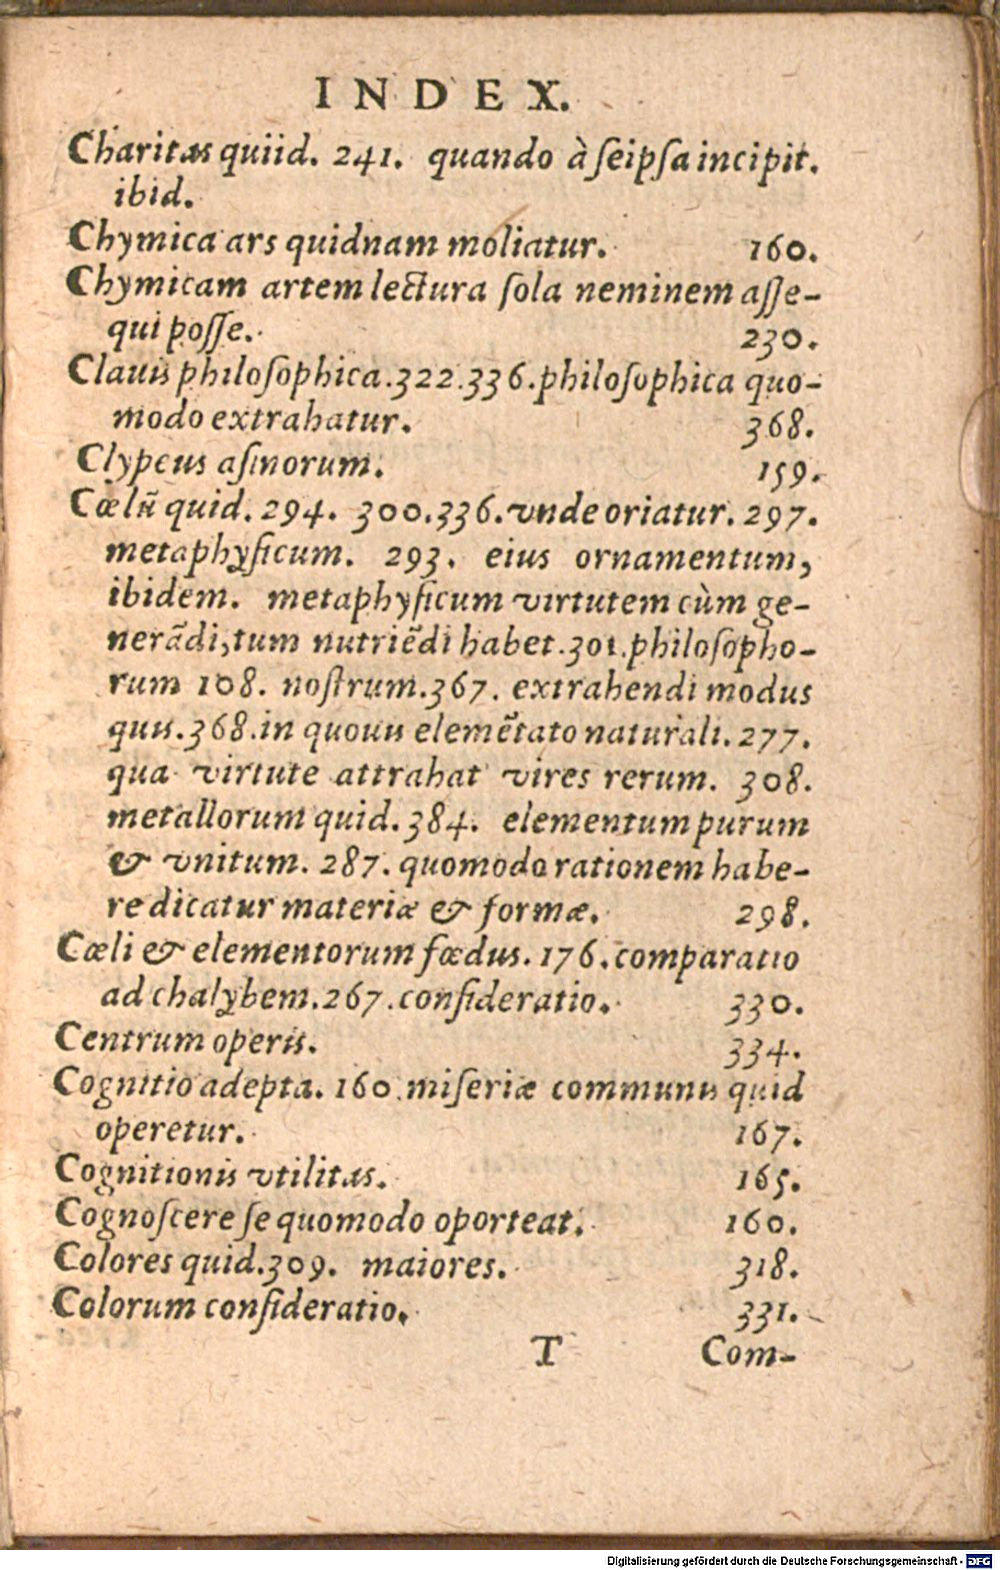 INDEX.
Charitas quiid. 241. quando à seipsa incipit.
ibid.
Chymica ars quidnam moliatur. 160.
Chymicam artem lectura sola neminem asse-
qui posse. 230.
Clauis philosophica. 322. 336. philosophica quo-
modo extrahatur. 368.
Clypeus asinorum. 159.
Cœlū quid. 294. 300. 336. vnde oriatur. 297.
metaphysicum. 293. eius ornamentum,
ibidem. metaphysicum virtutem cùm ge-
nerādi, tum nutriēdi habet. 301. philosopho-
rum 108. nostrum. 367. extrahendi modus
quis. 368. in quouis elemētato naturali. 277.
qua virtute attrahat vires rerum. 308.
metallorum quid. 384. elementum purum
& vnitum. 287. quomodo rationem habe-
re dicatur materiæ & formæ. 298.
Cœli & elementorum fœdus. 176. comparatio
ad chalybem. 267. consideratio. 330.
Centrum operis. 334.
Cognitio adepta. 160. miseriæ communis quid
operetur. 167.
Cognitionis vtilitas. 165.
Cognoscere se quomodo oporteat. 160.
Colores quid. 309. maiores. 318.
Colorum consideratio. 331.
T Com-
Digitalisierung gefördert durch die Deutsche Forschungsgemeinschaft - DFG